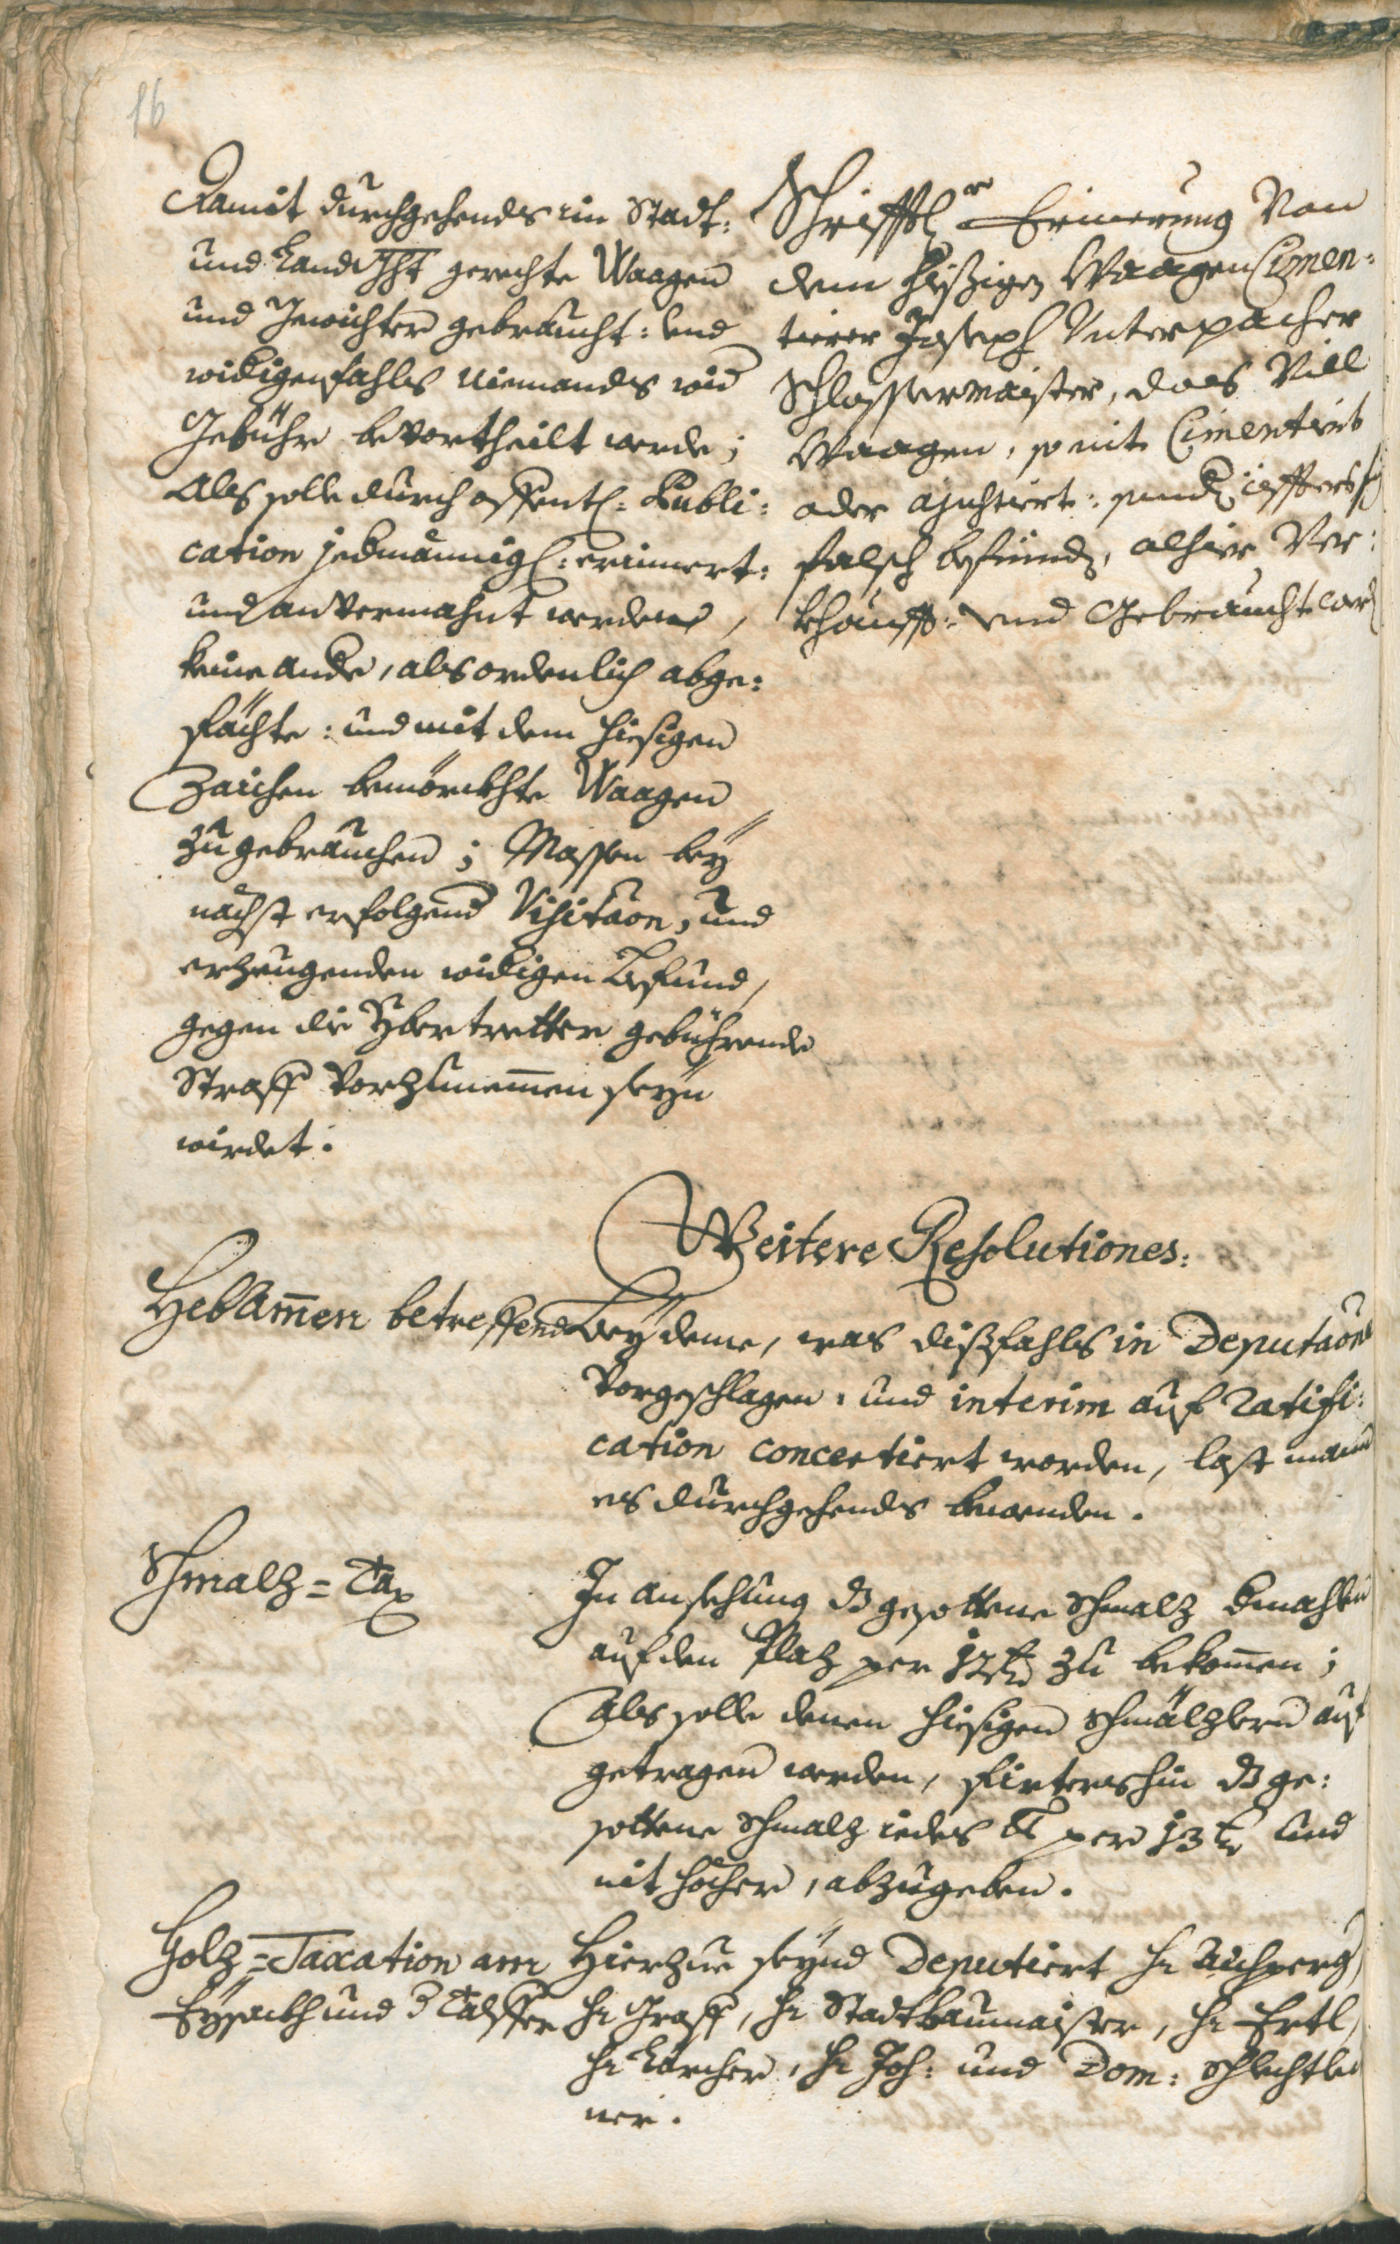 16
Damit durchgehends im Stadt:
und Landght gerechte Waagen
und Gewichter gebraucht: und
widrigenfahls niemands wid
Gebühr bevortheilt werde;
Als solle durch offentl: Publi:
cation jedmännigl: erinnert:
und anvermahnt werden,
keine andre, als ordenlich abge:
fächte: und mit dem hiesigen
Zaichen bemörckhte Waagen
zu gebrauchen; Massen bey
nächst erfolgend Visitaon, und
erzeugenden widrigen Befund,
gegen die Ybertretter gebührende
Straff vorzunemmen seyn
wirdet.
Schrifftl Erinerung von
dem hießigen Waagen Cimen:
tierer Joseph Unterpacher
Schlossermaister, daas Vill
Waagen, so nit Cimentirt
oder ajustiert: sondern öffters
falsch befundn, alhier Ver:
khaufft: und Gebraucht werd
Weitere Resolutiones:
HebAmen betreffend
Bey deme, was dißfahls in Deputaone
vorgeschlagen: und interim auf ratifi:
cation concertiert worden, last mann
es durchgehends bewenden.
Schmalz=Tax
In ansehung dz gesottene Schmalz dermahlen
auf den Plaz per 12 kr zu bekomen;
Als solle denen hiesigen Schmälzlern auf
getragen werden, firtershin dz ge:
sottene Schmalz iedes lb per 13 kr und
nit höcher, abzugeben.
Holz=Taxation am
Eysackh und Talffer
Hierzue seynd Deputiert hr Aichperg,
hr Graff, hr Stadtbaumaister, hr Ertl,
hr Larcher, hr Joh: und Dom: Schlechtlei
ner.